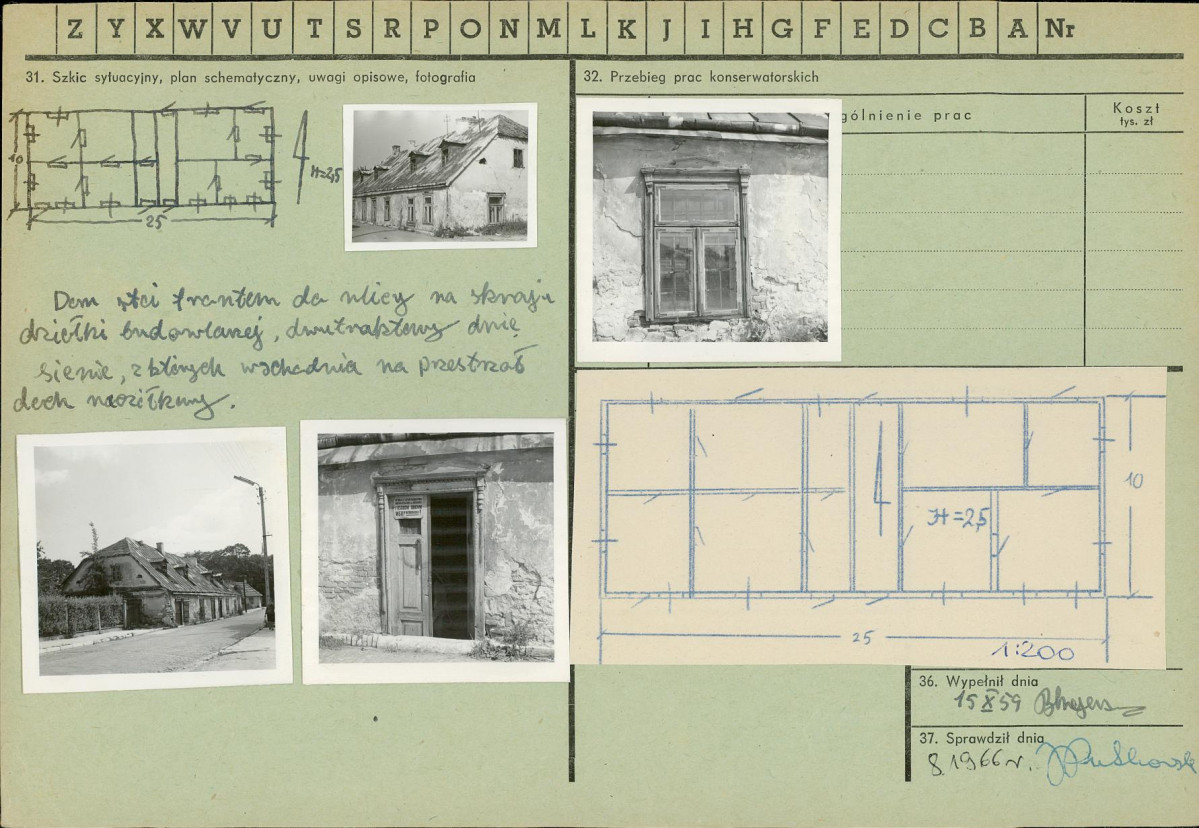 Z Y X W V U T S R P O N M L K J I H G F E D C B A Nr
31. Szkic sytuacyjny, plan schematyczny, uwagi opisowe, fotografia
10
H=2,5
25
Dom stoi frontem do ulicy na skraju
działki budowlanej, dwutraktowy dwie
sienie, z których wschodnia na przestrzał
dach naczółkowy.
32. Przebieg prac konserwatorskich
gólnienie prac
Koszt
tys. zł
H=2,5
10
25
1:200
36. Wypełnił dnia
15 X 59
37. Sprawdził dnia
8.1966 r.